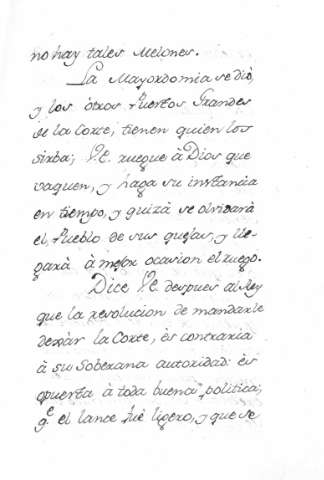 no hay tales Melones.
La Mayordomia se diò,
y los òtros Puestos Grandes
de la Corte, tienen quien los
sirba; V.E. ruegue à Dios que
vaquen, y haga su instancia
en tiempo, y quizà se olvidarà
el Pueblo de sus quejas, y lle-
garà à mejor ocasion el ruego.
Dice V.E. despues al Rey
que la resolucion de mandarle
dexar la Corte, ès contraria
à su Soberana autoridad: ès
opuesta à toda buena politica;
qe el lance fuè ligero, y que se